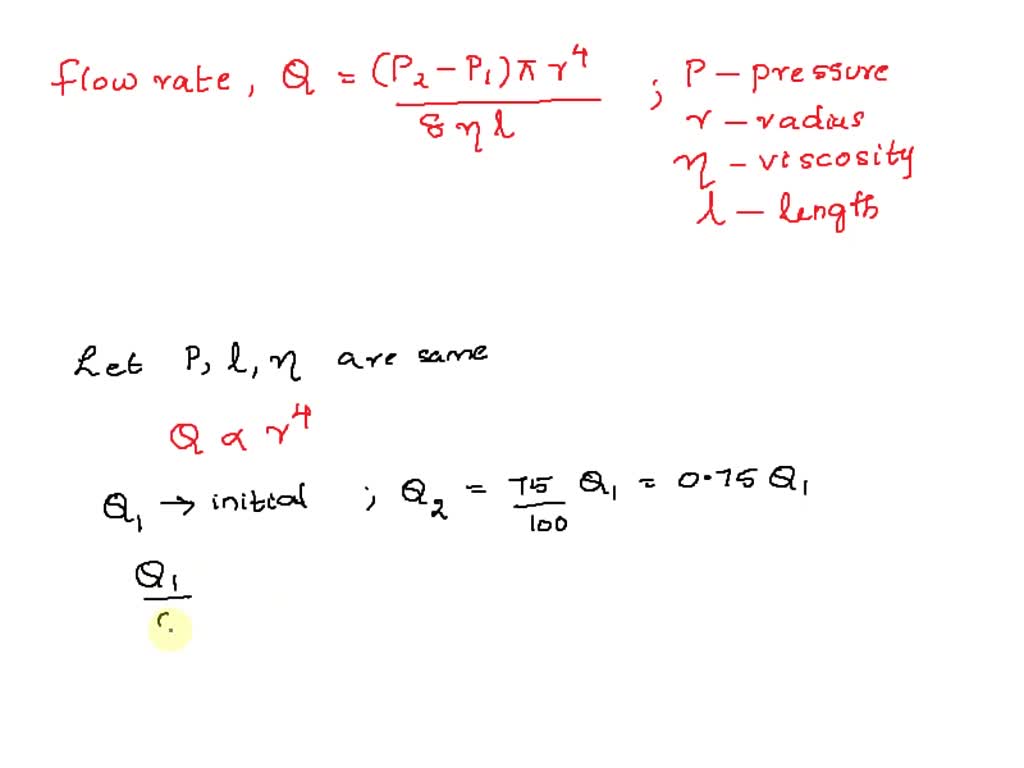 flow rate, Q = (P₂ – P₁) π r⁴ / 8 η l ; P – pressure
r – radius
η – viscosity
l – length
Let P, l, η are same
Q ∝ r⁴
Q₁ → initial ; Q₂ = 75/100 Q₁ = 0.75 Q₁
Q₁